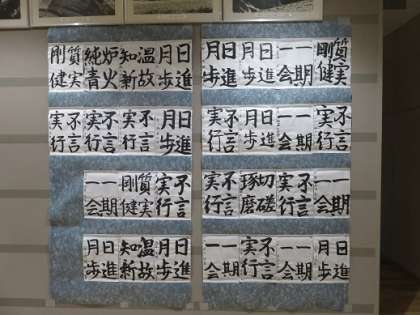 質実剛健
一期一会
日進月歩
日進月歩
不言実行
一期一会
日進月歩
不言実行
一期一会
不言実行
切磋琢磨
不言実行
日進月歩
一期一会
不言実行
一期一会
日進月歩
温故知新
炉火純青
質実剛健
日進月歩
不言実行
不言実行
不言実行
不言実行
質実剛健
一期一会
日進月歩
温故知新
日進月歩